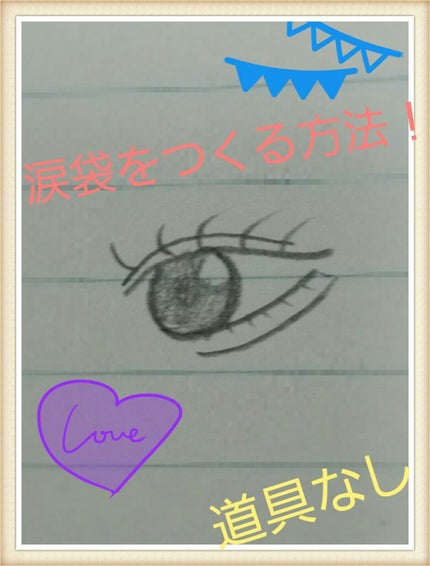 涙袋をつくる方法！
Love
道具なし